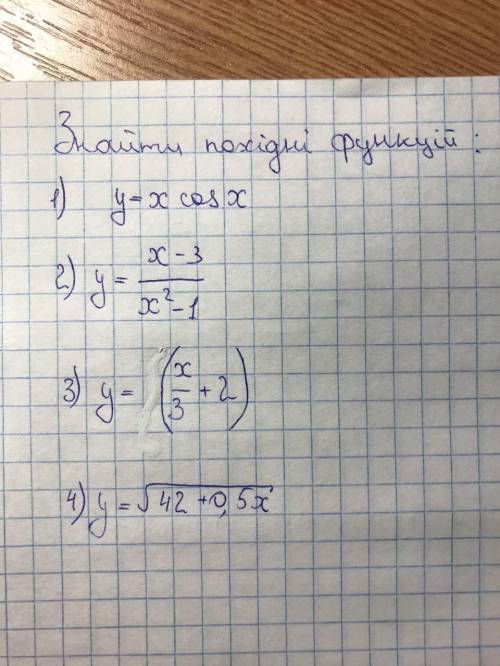 Знайти похідні функцій:
1) y = x cos x
2) y = (x - 3)/(x² - 1)
3) y = (x/3 + 2)
4) y = √(42 + 0,5x)